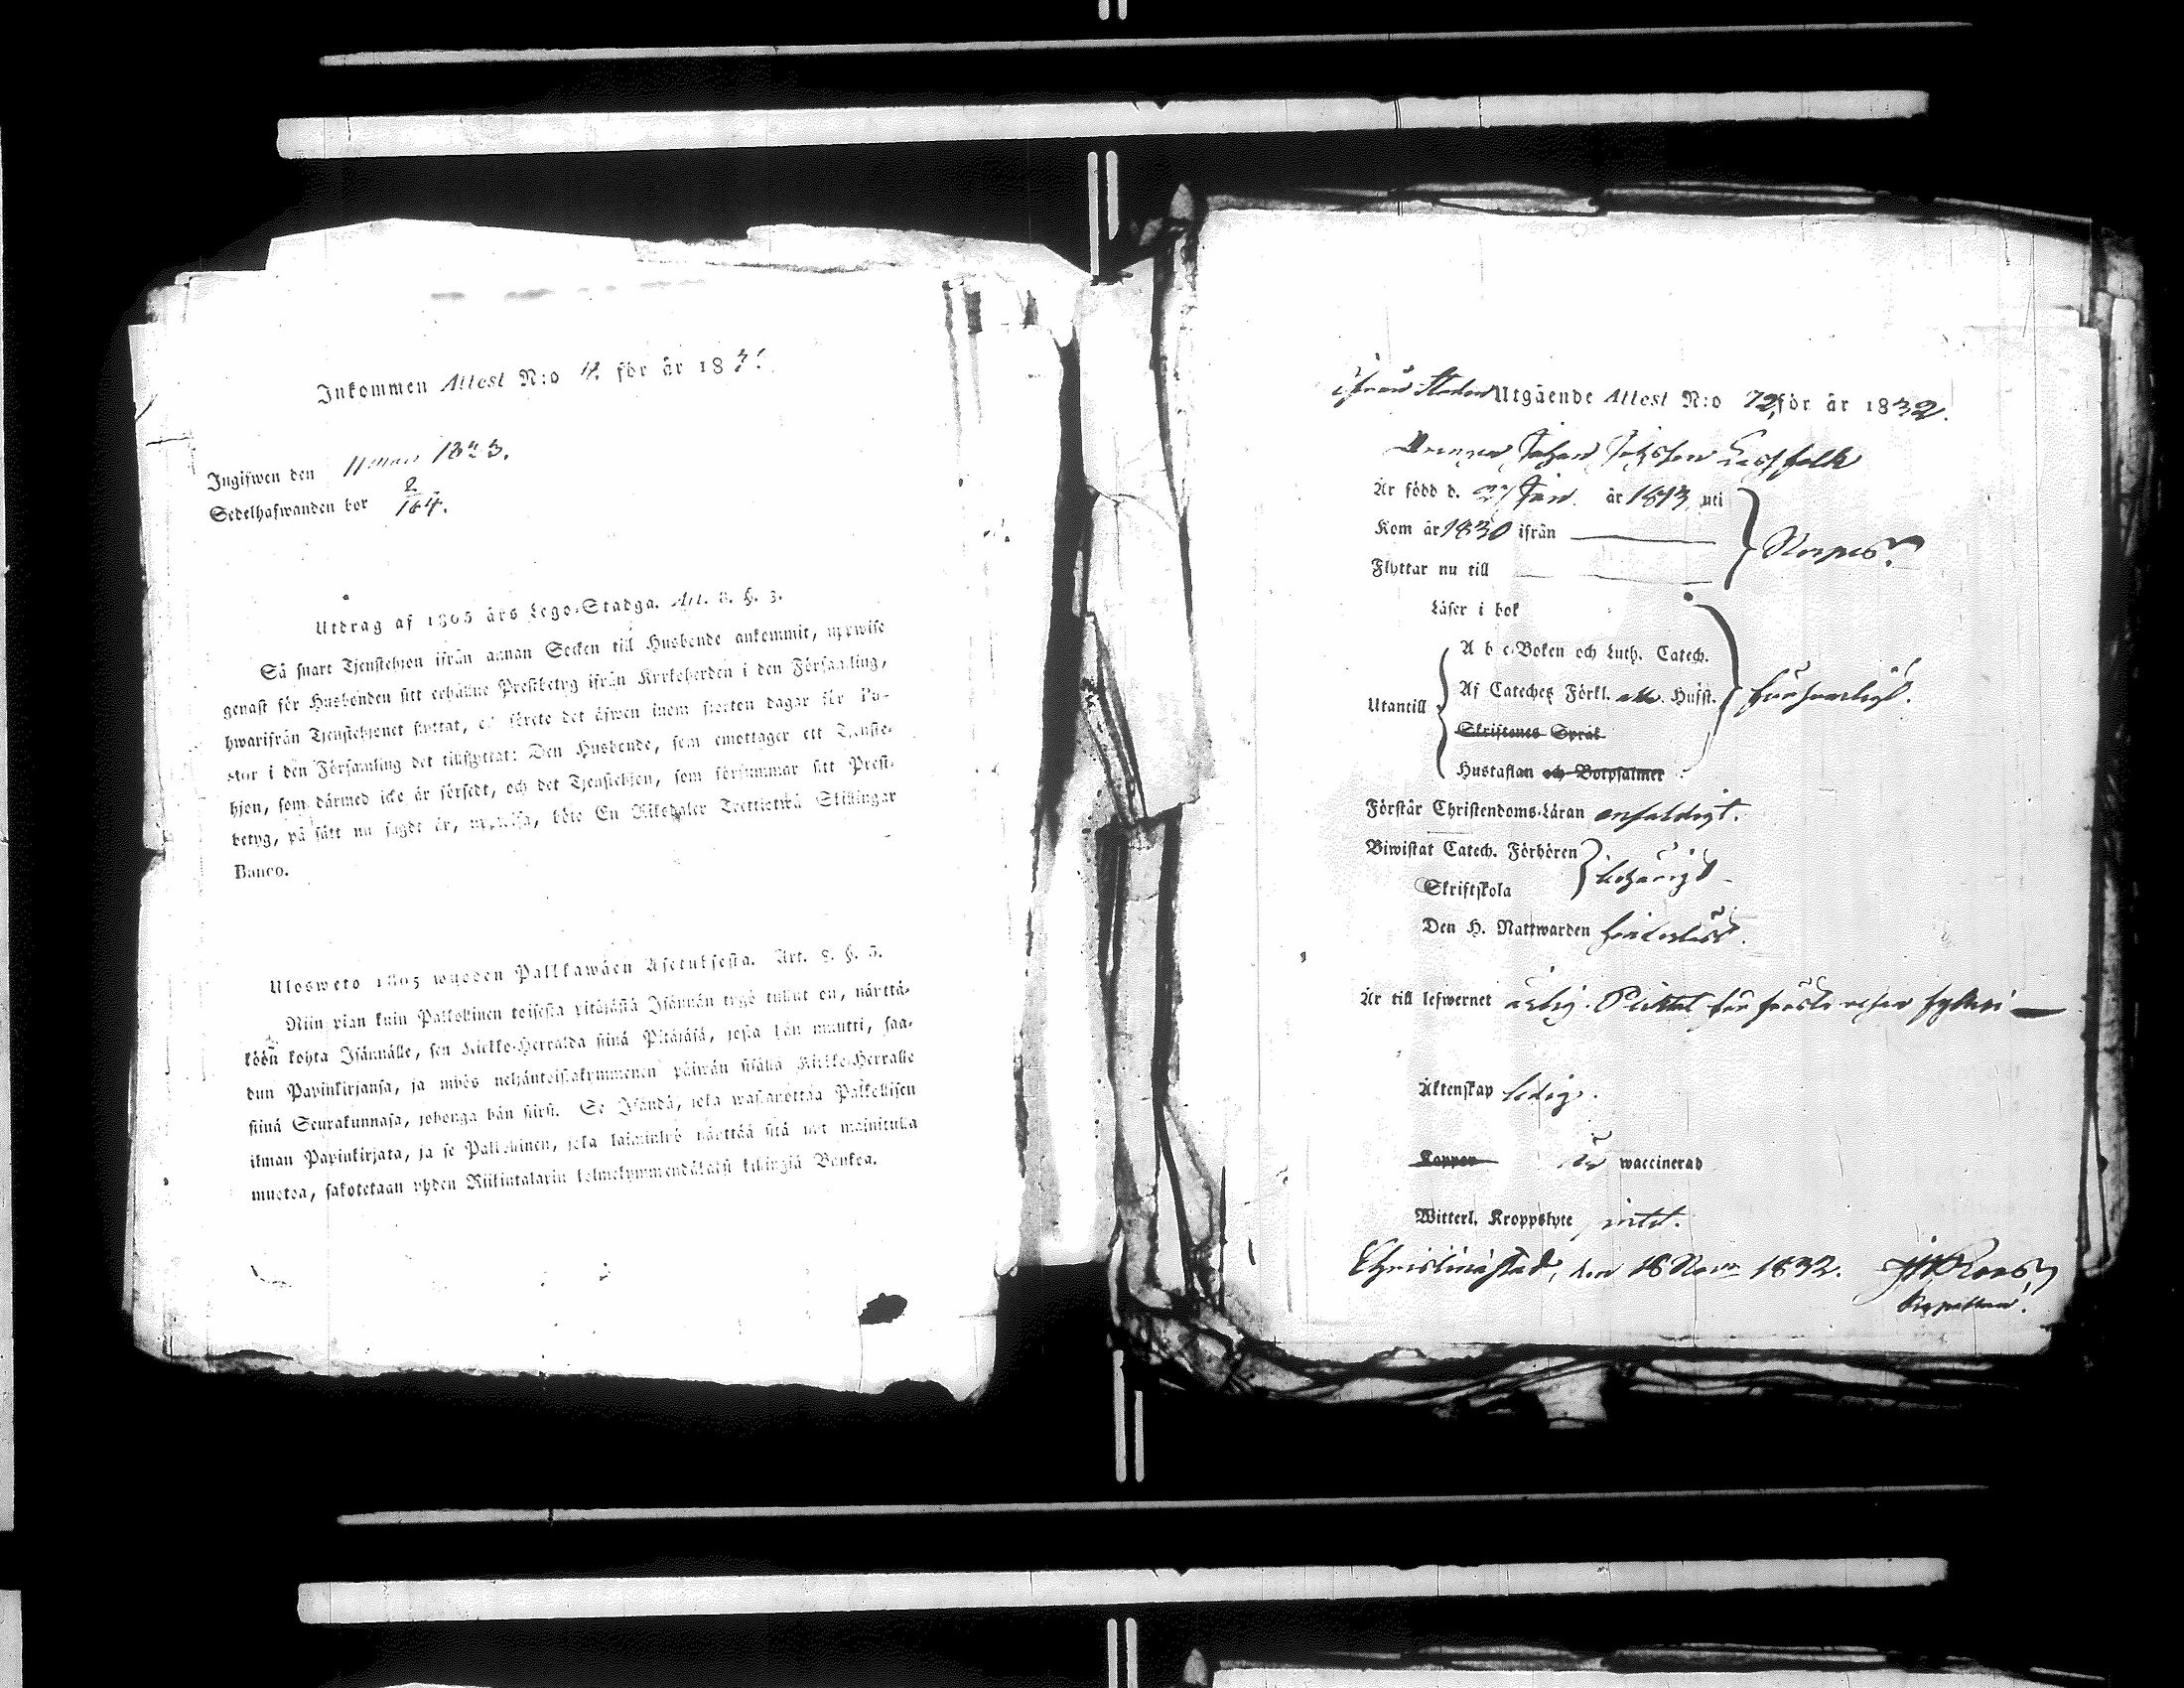 Inkommen Attest N:o 4. för år 183
Ingifwen den 11 1823.
Sedelhafwanden bor 2/164.
Utdrag af 1805 års Lego-Stadga. Art. 8. §. 3.
Så snart Tjenstehjon ifrån annan Socken till Husbonde ankommit, uppwise
genast för Husbonden sitt erhållne Prestbetyg ifrån Kyrkoherden i den Församling,
hwarifrån Tjenstehjonet flyttat, och förete det äfwen inom fjorton dagar för Pa-
stor i den Församling det tillflyttat: Den Husbonde, som emottager ett Tjenste-
hjon, som därmed icke är försedt, och det Tjenstehjon, som försummar sitt Prest-
betyg, på sätt nu sagdt är, uppwisa, böte En Riksdaler Trettiotwå Skillingar
Banco.
Ulosweto 1805 wuoden Palkkawäen Asetuksesta. Art. 8. §. 3.
Niin pian kuin Palkollinen toisesta pitäjästä Isännän tygö tullut on, näyttä-
köön kohta Isännälle, sen Kirkko-Herralda siinä Pitäjäsä, josta hän muutti, saa-
dun Papinkirjansa, ja myös neljäntoistakymmenen päiwän sisällä Kirkko-Herralle
siinä Seurakunnasa, johonga hän siirsi. Se Isändä, joka wastaanottaa Palkollisen
ilman Papinkirjata, ja se Palkollinen, joka laiminlyö näyttää sitä nyt mainitulla
muotoa, sakotetaan yhden Riikintalarin kolmekymmendäkaksi killingiä Bankoa.
ifrån Staden Utgående Attest N:o 72 för år 1832.
Drengen Johan Johsson
Är född d. 27 Jan. år 1813 uti
Kom år 1830 ifrån
Flyttar nu till
Korpo.
Läser i bok
A b c Boken och Luth. Catech.
Utantill
Af Cateches Förkl. Husst.
försvarligt.
Skriftenes Språk
Hustaflan och Botpsalmer
Förstår Christendoms-Läran enfaldigt.
Biwistat Catech. Förhören
Skriftskola
behörigt
Den H. Nattwarden
Är till lefwernet ärlig. Pliktat för första resan fylleri
Äktenskap ledig.
Koppor är waccinerad
Witterl. Kroppslyte intet.
Christinæstad, den 18 Nov. 1832. Roos
Kapellan.